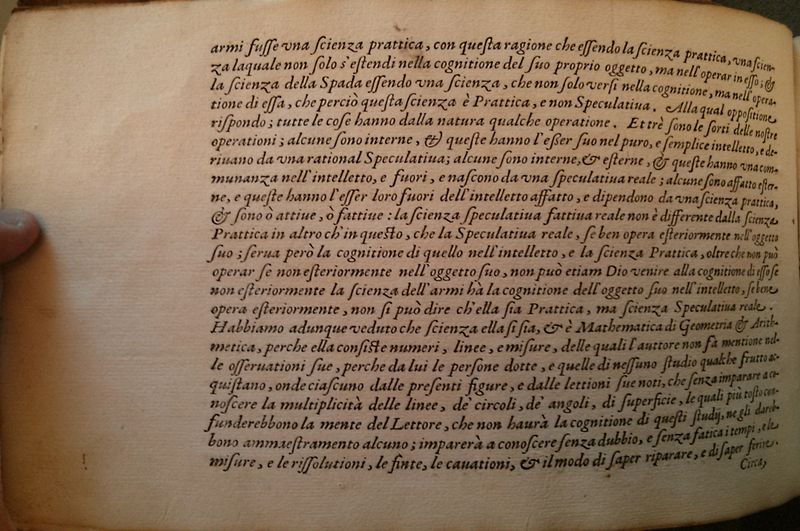 armi fusse vna scienza prattica, con questa ragione che essendo la scienza prattica, vna scien-
za laquale non solo s'estendi nella cognitione del suo proprio oggetto, ma nell'operar in esso; &
la scienza della Spada essendo vna scienza, che non solo versi nella cognitione, ma nell'opera-
tione di essa, che perciò questa scienza è Prattica, e non Speculatiua. Alla qual oppositione
rispondo; tutte le cose hanno dalla natura qualche operatione. Et trè sono le sorti delle nostre
operationi; alcune sono interne, & queste hanno l'esser suo nel puro, e semplice intelletto, e de-
riuano da vna rational Speculatiua; alcune sono interne, & esterne, & queste hanno vna com-
munanza nell'intelletto, e fuori, e nascono da vna speculatiua reale; alcune sono affatto ester-
ne, e queste hanno l'esser loro fuori dell'intelletto affatto, e dipendono da vna scienza prattica,
& sono ò attiue, ò fattiue: la scienza speculatiua fattiua reale non è differente dalla scienza
Prattica in altro ch'in questo, che la Speculatiua reale, se ben opera esteriormente nell'oggetto
suo; serua però la cognitione di quello nell'intelletto, e la scienza Prattica, oltre che non può
operar se non esteriormente nell'oggetto suo, non può etiam Dio venire alla cognitione di esso se
non esteriormente la scienza dell'armi hà la cognitione dell'oggetto suo nell'intelletto, se bene
opera esteriormente, non si può dire ch'ella sia Prattica, ma scienza Speculatiua reale.
Habbiamo adunque veduto che scienza ella si sia, & è Mathematica di Geometria & Arith-
metica, perche ella consiste numeri, linee, e misure, delle quali l'auttore non fà mentione nel-
le osseruationi sue, perche da lui le persone dotte, e quelle di nessuno studio qualche frutto ac-
quistano, onde ciascuno dalle presenti figure, e dalle lettioni sue noti, che senza imparare a co-
noscere la multiplicità delle linee, de' circoli, de' angoli, di superficie, le quali più tosto con-
funderebbono la mente del Lettore, che non haurà la cognitione di questi studij, ne gli dareb-
bono ammaestramento alcuno; imparerà a conoscere senza dubbio, e senza fatica i tempi, e le
misure, e le rissolutioni, le finte, le cauationi, & il modo di saper riparare, e di saper ferire.
Circa,